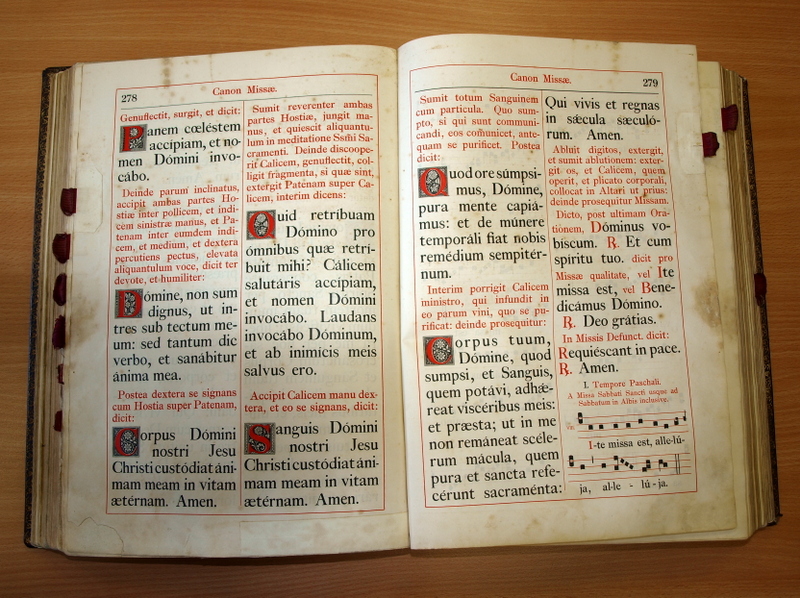 278
Canon Missæ.
Genuflectit, surgit, et dicit:
Panem cœléstem
accípiam, et no-
men Dómini invo-
cábo.
Deinde parum inclinatus,
accipit ambas partes Ho-
stiæ inter pollicem, et indi-
cem sinistræ manus, et Pa-
tenam inter eumdem indi-
cem, et medium, et dextera
percutiens pectus, elevata
aliquantulum voce, dicit ter
devote, et humiliter:
Dómine, non sum
dignus, ut in-
tres sub tectum me-
um: sed tantum dic
verbo, et sanábitur
ánima mea.
Postea dextera se signans
cum Hostia super Patenam,
dicit:
Corpus Dómini
nostri Jesu
Christi custódiat áni-
mam meam in vitam
ætérnam. Amen.
Sumit reverenter ambas
partes Hostiæ, jungit ma-
nus, et quiescit aliquantu-
lum in meditatione Ssmi Sa-
cramenti. Deinde discoope-
rit Calicem, genuflectit, col-
ligit fragmenta, si quæ sint,
extergit Patenam super Ca-
licem, interim dicens:
Quid retríbuam
Dómino pro
ómnibus quæ retrí-
buit mihi? Cálicem
salutáris accípiam,
et nomen Dómini
invocábo. Laudans
invocábo Dóminum,
et ab inimícis meis
salvus ero.
Accipit Calicem manu dex-
tera, et eo se signans, dicit:
Sanguis Dómini
nostri Jesu
Christi custódiat áni-
mam meam in vitam
ætérnam. Amen.
Canon Missæ.
279
Sumit totum Sanguinem
cum particula. Quo sum-
pto, si qui sunt communi-
candi, eos com̃unicet, ante-
quam se purificet. Postea
dicit:
Quod ore súmpsi-
mus, Dómine,
pura mente capiá-
mus: et de múnere
temporáli fiat nobis
remédium sempitér-
num.
Interim porrigit Calicem
ministro, qui infundit in
eo parum vini, quo se pu-
rificat: deinde prosequitur:
Corpus tuum,
Dómine, quod
sumpsi, et Sanguis,
quem potávi, adhǽ-
reat viscéribus meis:
et præsta; ut in me
non remáneat scéle-
rum mácula, quem
pura et sancta refe-
cérunt sacraménta:
Qui vivis et regnas
in sǽcula sæculó-
rum. Amen.
Abluit digitos, extergit,
et sumit ablutionem: exter-
git os, et Calicem, quem
operit, et plicato corporali,
collocat in Altari ut prius:
deinde prosequitur Missam.
Dicto, post ultimam Ora-
tionem, Dóminus vo-
bíscum. ℟. Et cum
spíritu tuo. dicit pro
Missæ qualitate, vel Ite
missa est, vel Bene-
dicámus Dómino.
℟. Deo grátias.
In Missis Defunct. dicit:
Requiéscant in pace.
℟. Amen.
I. Tempore Paschali.
A Missa Sabbati Sancti usque ad
Sabbatum in Albis inclusive.
I-te missa est, alle-lú-
ja, al-le - lú-ja.